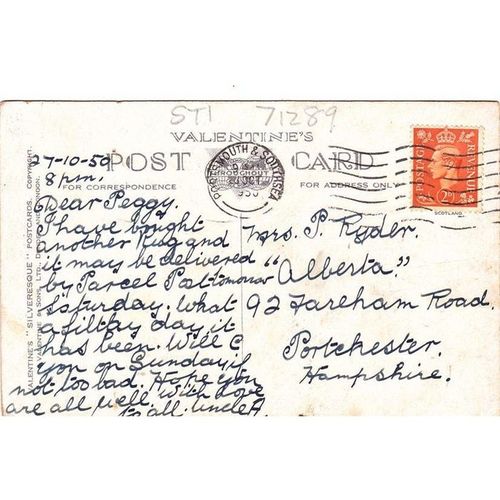 STI 71289
VALENTINE'S
POST CARD
FOR CORRESPONDENCE
FOR ADDRESS ONLY
PORTSMOUTH & SOUTHSEA
OCT
POSTAGE REVENUE
2D
SCOTLAND.
VALENTINE'S "SILVERESQUE" POSTCARDS. COPYRIGHT.
VALENTINE & SONS, LTD., DUNDEE AND LONDON.
27-10-50
8pm.
Dear Peggy.
I have bought
another Rug and
it may be delivered
by Parcel Post tomorrow
Saturday. What
a filthy day it
has been. Will C
you on Sunday if
not too bad. Hope you
are all well with love
to all. Uncle A.
Mrs. P. Ryder.
"Alberta."
92 Fareham Road.
Portchester.
Hampshire.